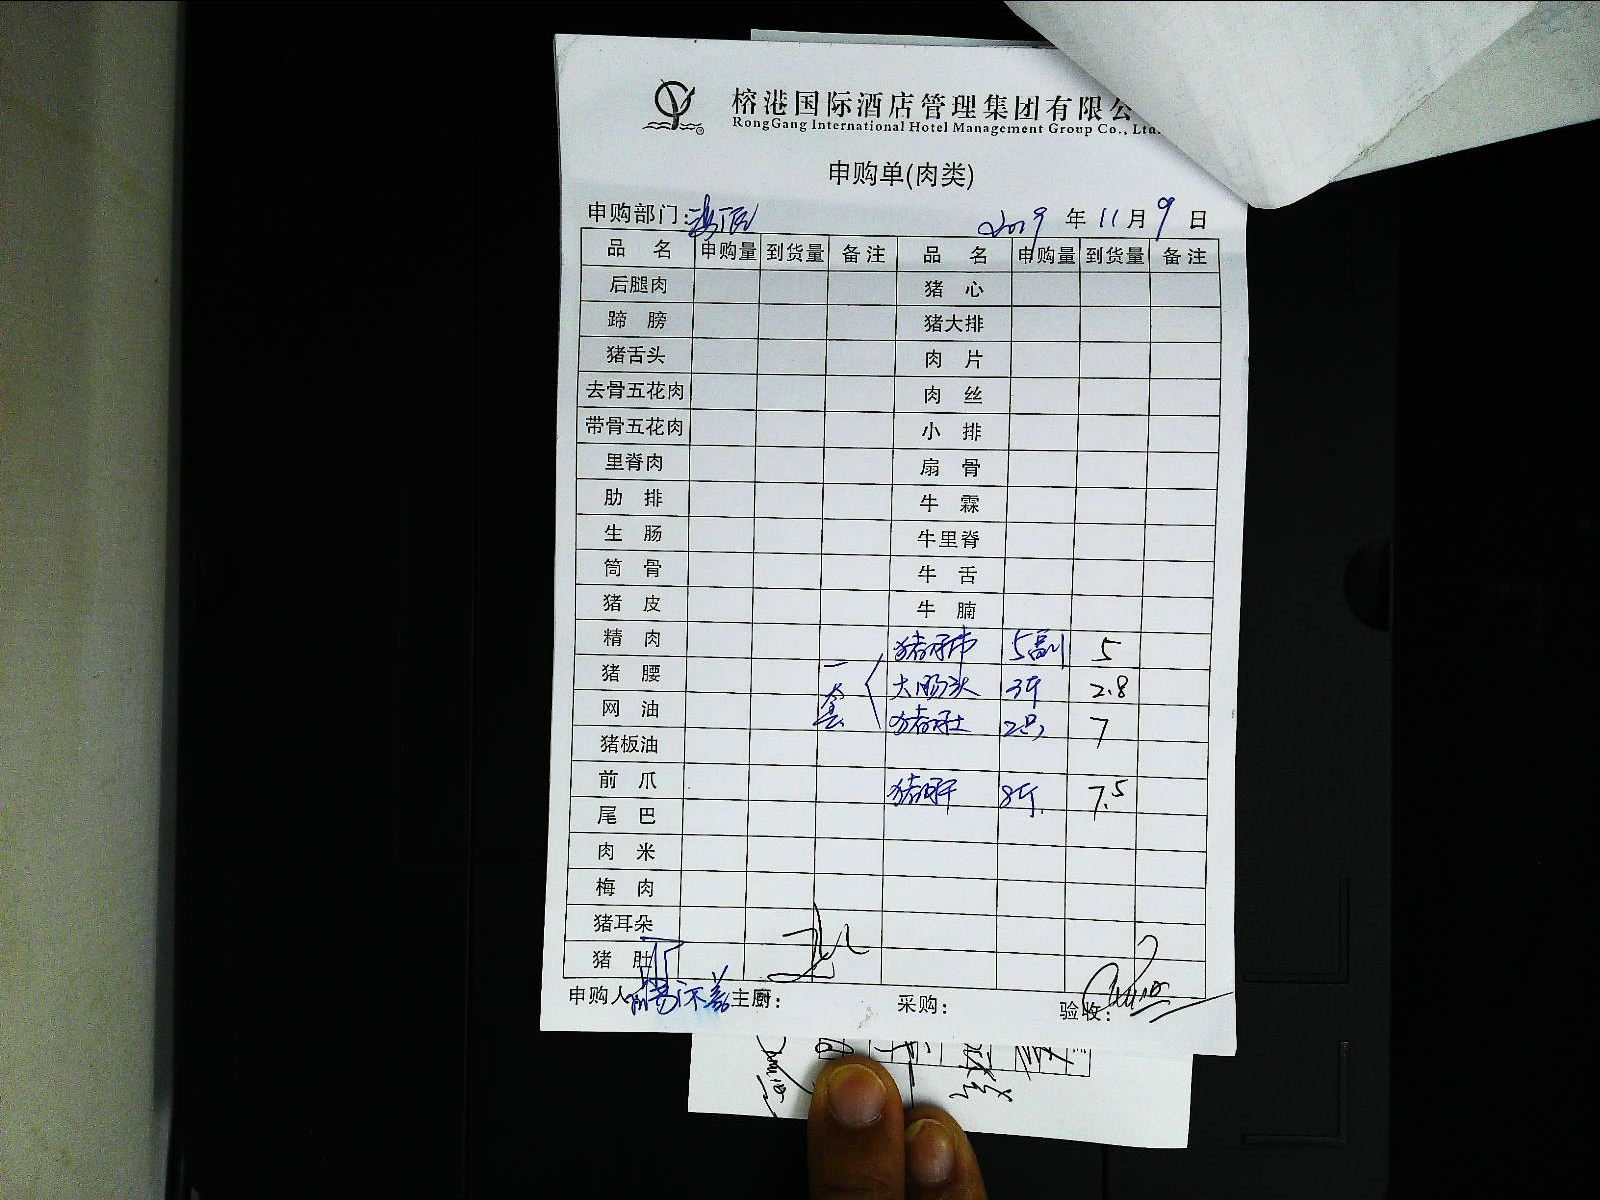 榕港国际酒店管理集团有限公
RongGang International Hotel Management Group Co., Ltd.
申购单(肉类)
申购部门: 2019 年 11 月 9 日
品 名 申购量 到货量 备注 品 名 申购量 到货量 备注
后腿肉 猪 心
蹄 膀 猪大排
猪舌头 肉 片
去骨五花肉 肉 丝
带骨五花肉 小 排
里脊肉 扇 骨
肋 排 牛 霖
生 肠 牛里脊
筒 骨 牛 舌
猪 皮 牛 腩
精 肉 猪肺 5副 5
猪 腰 一套 大肠头 3斤 2.8
网 油 猪肚 2只 7
猪板油
前 爪 猪肝 8斤 7.5
尾 巴
肉 米
梅 肉
猪耳朵
猪 肚
申购人 主厨: 采购: 验收: